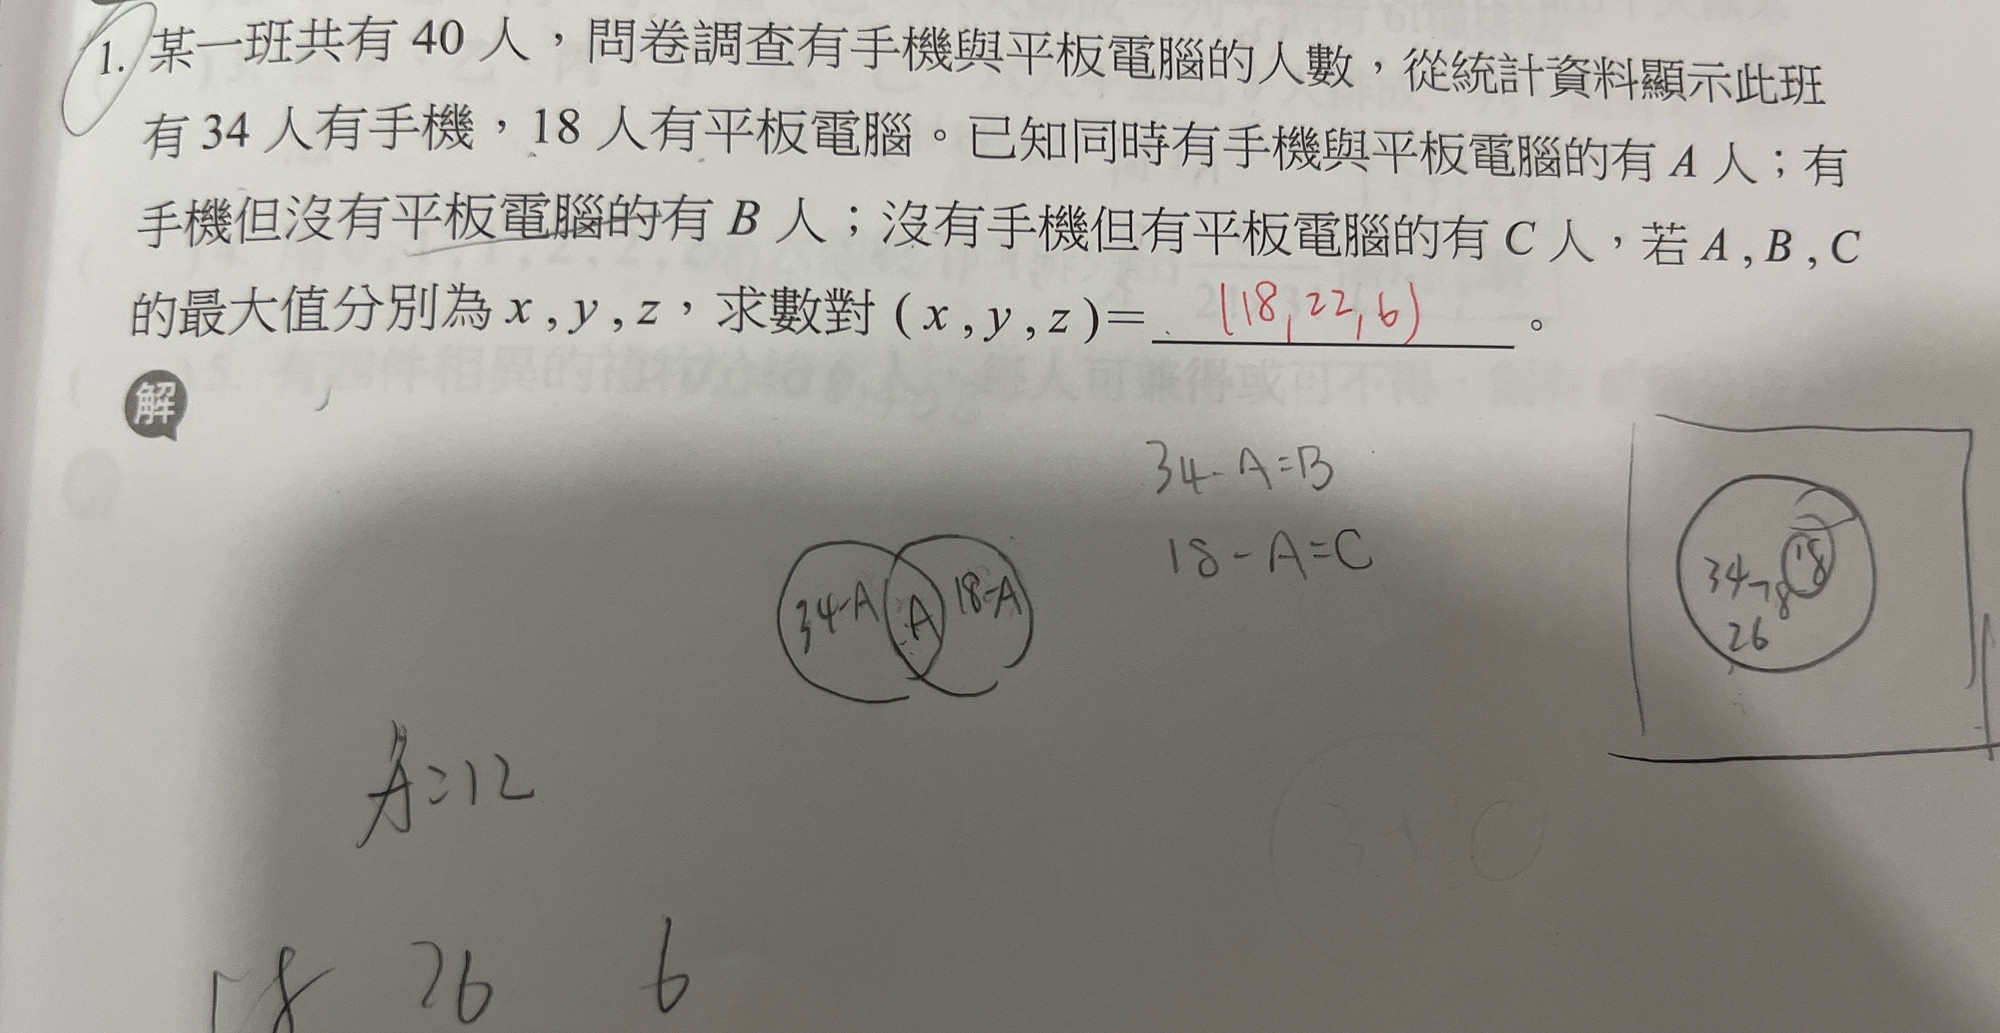 1. 某一班共有 40 人，問卷調查有手機與平板電腦的人數，從統計資料顯示此班
有 34 人有手機，18 人有平板電腦。已知同時有手機與平板電腦的有 A 人；有
手機但沒有平板電腦的有 B 人；沒有手機但有平板電腦的有 C 人，若 A , B , C
的最大值分別為 x , y , z，求數對 ( x , y , z )= (18,22,6) 。
解
34-A=B
18-A=C
34-A A 18-A
34-18 18
26
A=12
18 26 6